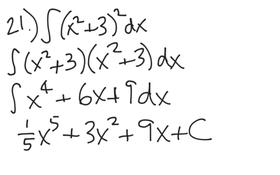 21.) ∫(x²+3)²dx
∫(x²+3)(x²+3)dx
∫x⁴+6x+9dx
⅕x⁵+3x²+9x+C